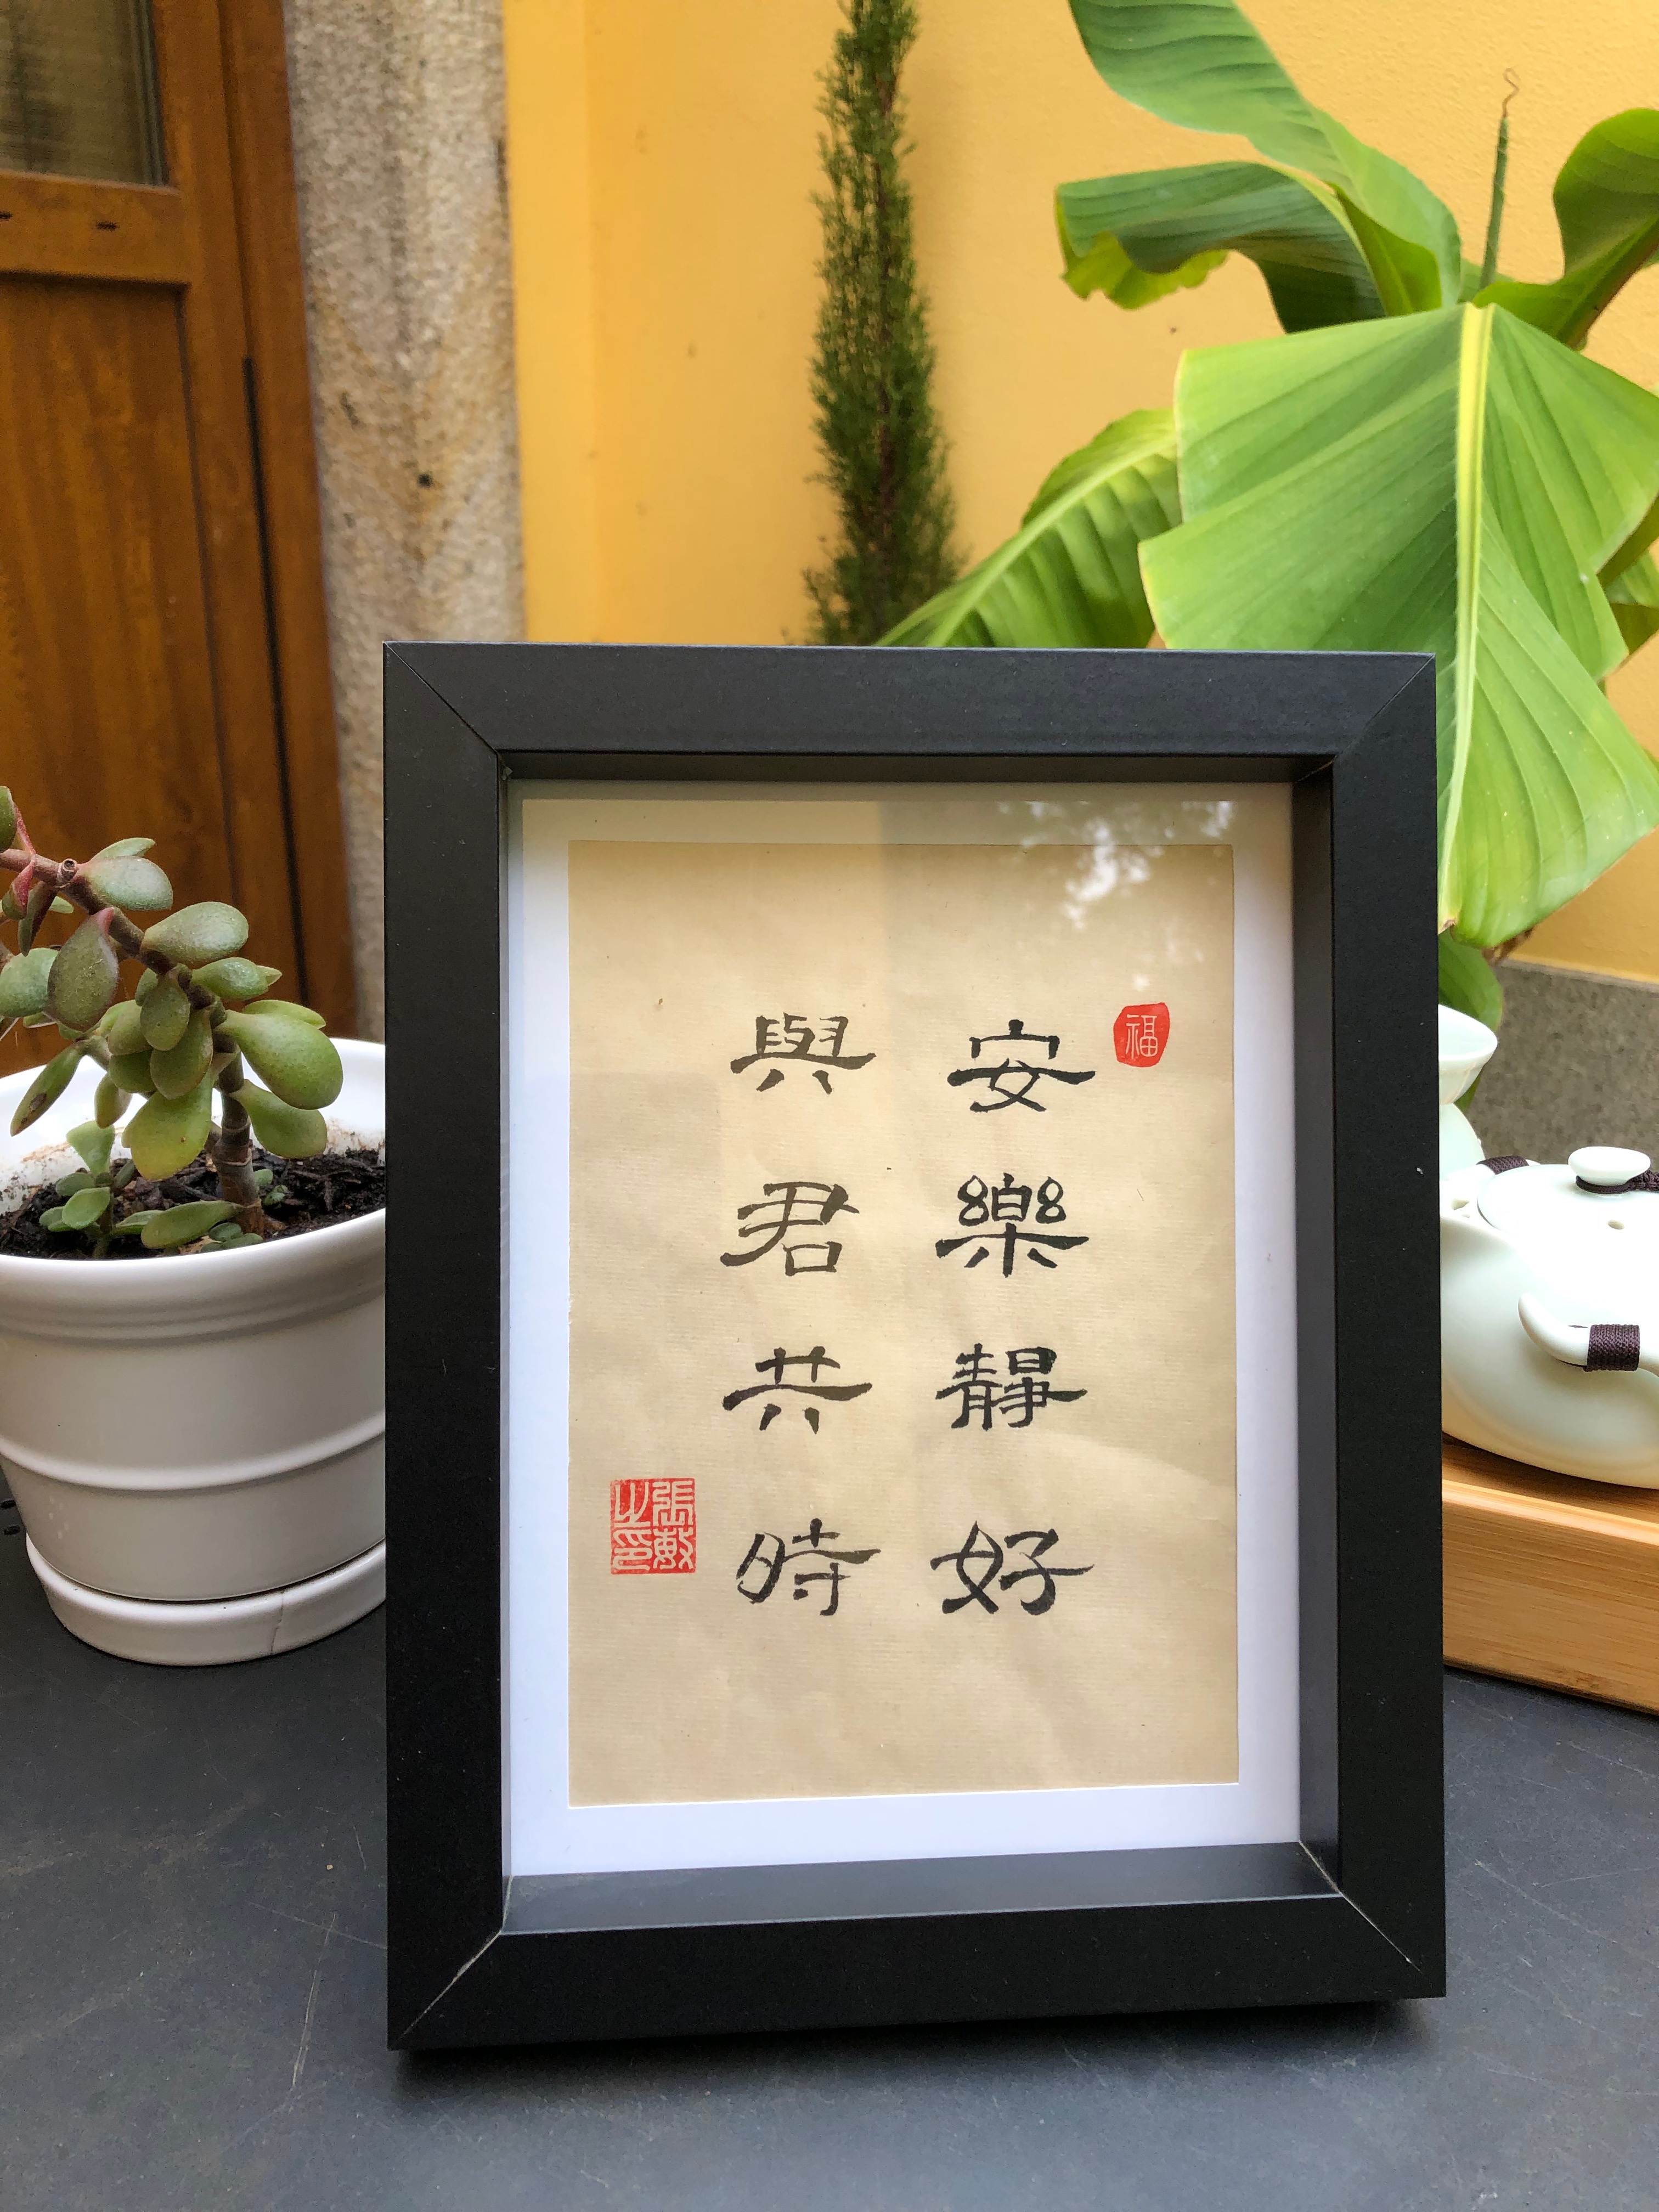 福
安樂靜好
與君共時
張敫之印